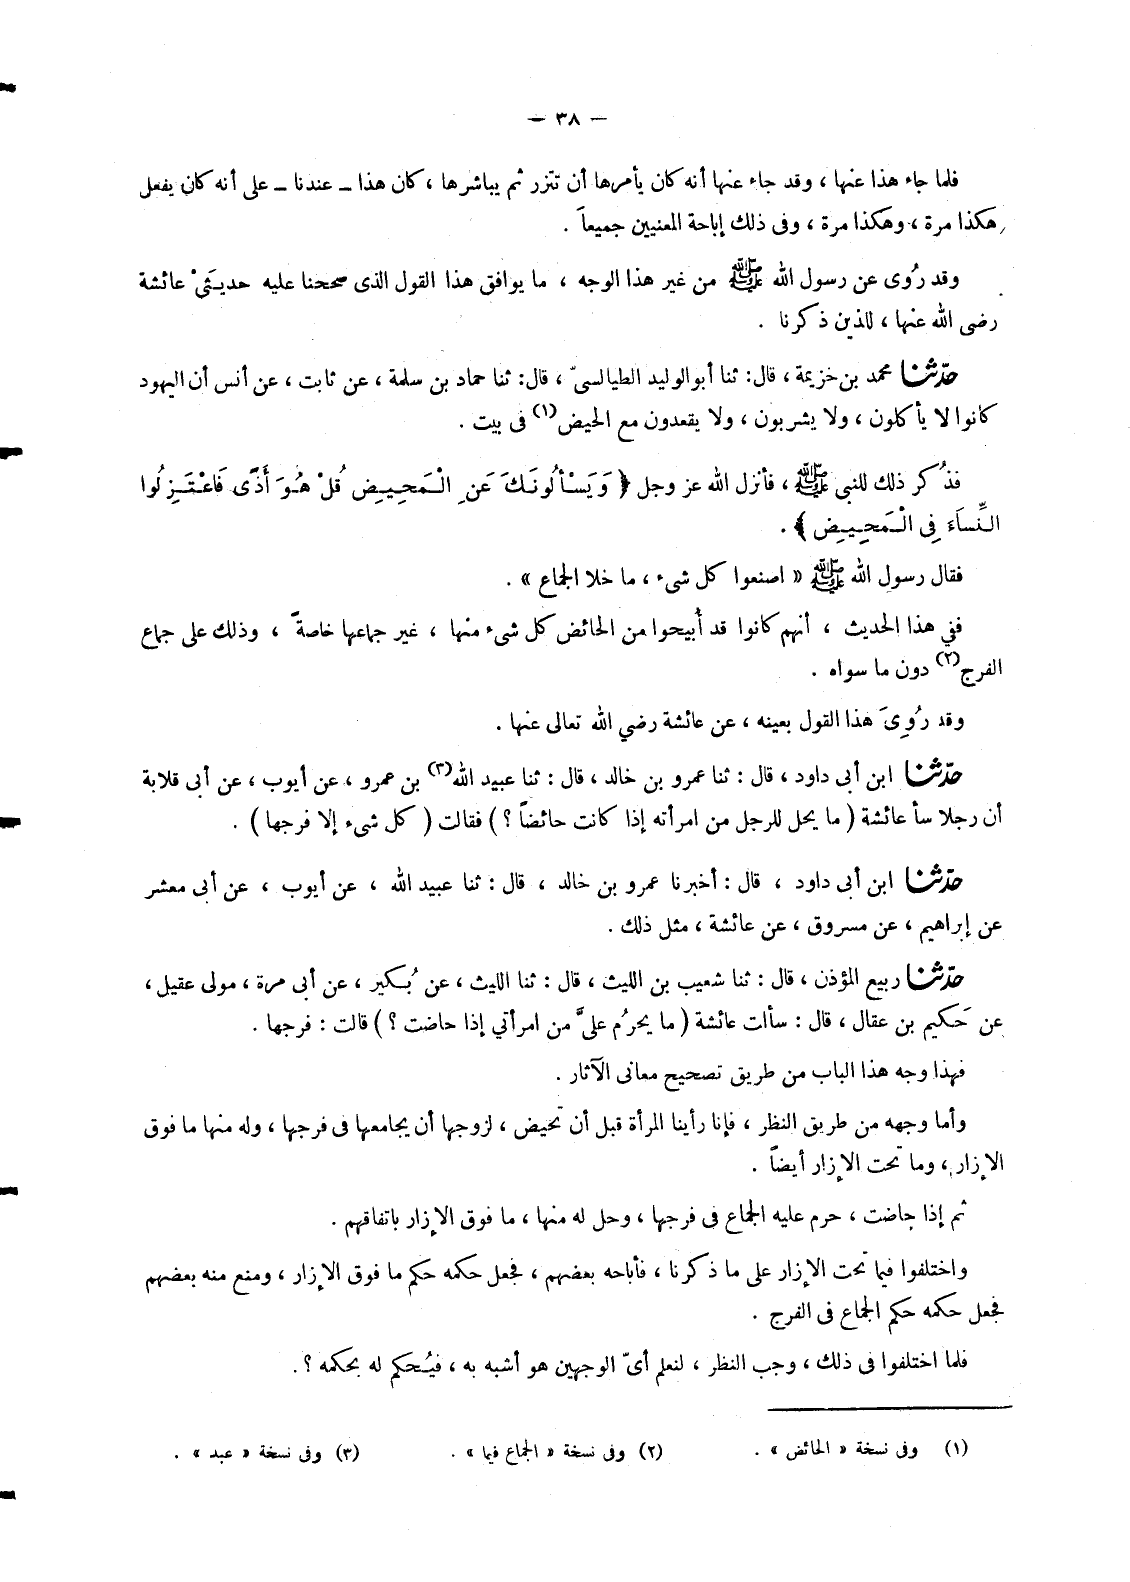 — ٣٨ —
فلما جاء هذا عنها ، وقد جاء عنها أنه كان يأمرها أن تتزر ثم يباشرها ، كان هذا ــ عندنا ــ على أنه كان يفعل
هكذا مرة ، وهكذا مرة ، وفى ذلك إباحة المعنيين جميعاً .
وقد رُوى عن رسول الله ﷺ من غير هذا الوجه ، ما يوافق هذا القول الذى صححنا عليه حديثَىْ عائشة
رضى الله عنها ، للذين ذكرنا .
حدّثنا محمد بن خزيمة ، قال: ثنا أبو الوليد الطيالسىّ ، قال: ثنا حماد بن سلمة ، عن ثابت ، عن أنس أن اليهود
كانوا لا يأكلون ، ولا يشربون ، ولا يقعدون مع الحيض(١) فى بيت .
فذُكر ذلك للنبى ﷺ ، فأنزل الله عز وجل ﴿ وَيَسْأَلُونَكَ عَنِ الْمَحِيضِ قُلْ هُوَ أَذًى فَاعْتَزِلُوا
النِّسَاءَ فِى الْمَحِيضِ ﴾ .
فقال رسول الله ﷺ « اصنعوا كل شىء ، ما خلا الجماع » .
ففي هذا الحديث ، أنهم كانوا قد أُبيحوا من الحائض كل شىء منها ، غير جماعها خاصةً ، وذلك على جماع
الفرج(٢) دون ما سواه .
وقد رُوِىَ هذا القول بعينه ، عن عائشة رضي الله تعالى عنها .
حدّثنا ابن أبى داود ، قال : ثنا عمرو بن خالد ، قال : ثنا عبيد الله(٣) بن عمرو ، عن أيوب ، عن أبى قلابة
أن رجلا سأ عائشة ( ما يحل للرجل من امرأته إذا كانت حائضاً ؟ ) فقالت ( كل شىء إلا فرجها ) .
حدّثنا ابن أبى داود ، قال : أخبرنا عمرو بن خالد ، قال : ثنا عبيد الله ، عن أيوب ، عن أبى معشر
عن إبراهيم ، عن مسروق ، عن عائشة ، مثل ذلك .
حدّثنا ربيع المؤذن ، قال : ثنا شعيب بن الليث ، قال : ثنا الليث ، عن بُكير ، عن أبى مرة ، مولى عقيل ،
عن حَكيم بن عقال ، قال : سألت عائشة ( ما يحرُم علىَّ من امرأتي إذا حاضت ؟ ) قالت : فرجها .
فهذا وجه هذا الباب من طريق تصحيح معانى الآثار .
وأما وجهه من طريق النظر ، فإنا رأينا المرأة قبل أن تحيض ، لزوجها أن يجامعها فى فرجها ، وله منها ما فوق
الإزار ، وما تحت الإزار أيضاً .
ثم إذا حاضت ، حرم عليه الجماع فى فرجها ، وحل له منها ، ما فوق الإزار باتفاقهم .
واختلفوا فيما تحت الإزار على ما ذكرنا ، فأباحه بعضهم ، فجعل حكمه حكم ما فوق الإزار ، ومنع منه بعضهم
فجعل حكمه حكم الجماع فى الفرج .
فلما اختلفوا فى ذلك ، وجب النظر ، لنعلم أىّ الوجهين هو أشبه به ، فيُحكم له بحكمه ؟ .
(١) وفى نسخة « الحائض » . (٢) وفى نسخة « الجماع فيما » . (٣) وفى نسخة « عبد » .